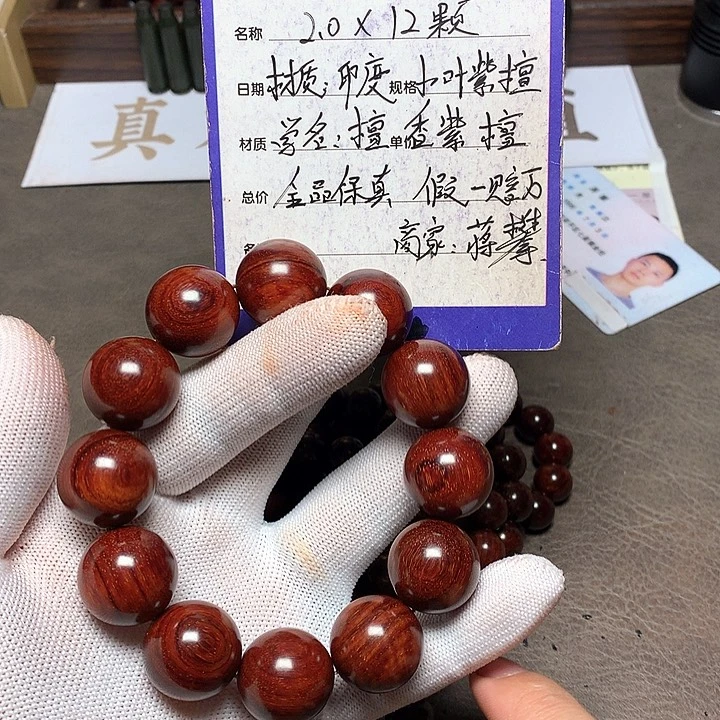 名称 2.0 X 12颗
日期 材质: 印度 规格 小叶紫檀
材质 学名: 檀 单价 香紫檀
总价 全品保真 假一赔万
商家: 蒋攀
真